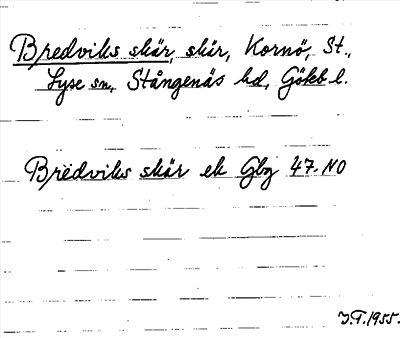 Bredviks skär, skär, Kornö, St.,
Lyse sn, Stångenäs hd, Gökb l.
Bredviks skär ek Gbg 47. NO
J.F. 1955.